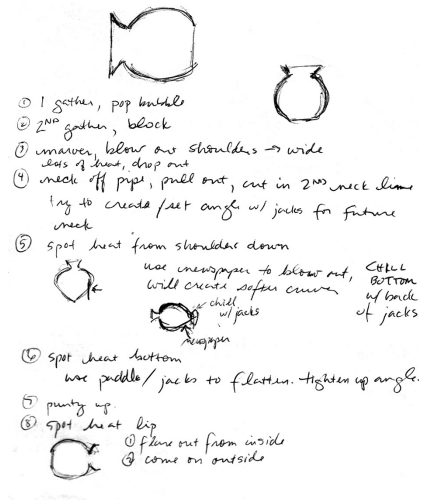 ① 1 gather, pop bubble
② 2ND gather, block
③ marver, blow out shoulders → wide
lots of heat, drop out
④ neck off pipe, pull out, cut in 2ND neck line
try to create/set angle w/ jacks for future
neck
⑤ spot heat from shoulders down
use newspaper to blow out,
will create softer curve
CHILL
BOTTOM
w/ back
of jacks
chill
w/ jacks
newspaper
⑥ spot heat bottom
use paddle/jacks to flatten. tighten up angle.
⑦ punty up.
⑧ spot heat lip
① flare out from inside
② come on outside